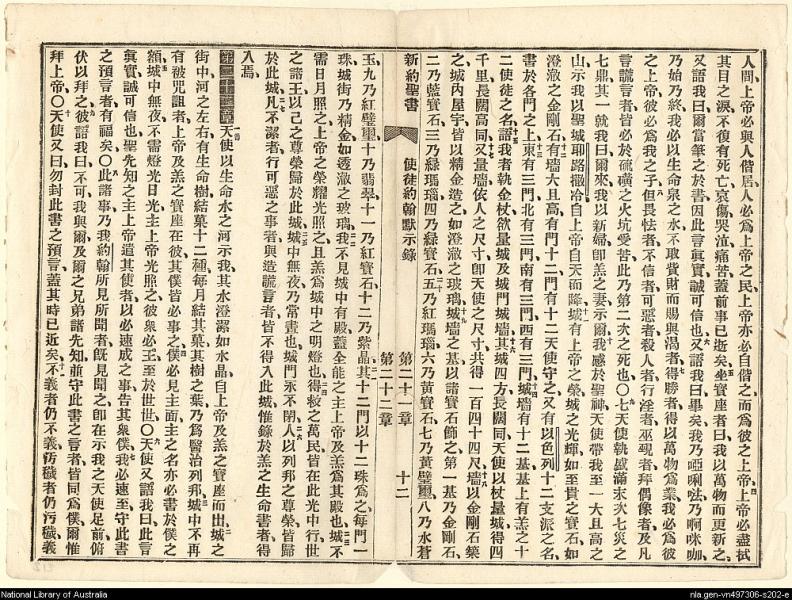 人間上帝必與人偕居人必爲上帝之民上帝亦必自偕之而爲彼之上帝上帝必盡拭
其目之淚不復有死亡哀傷哭泣痛苦蓋前事已逝矣坐寶座者曰我以萬物而更新之
又語我曰爾當筆之於書因此言眞實誠可信也又語我曰畢矣我乃啞唎乃啊咪咖
乃始乃終我必以生命泉之水不取貲財而賜與渴者得勝者得以萬物爲業我必爲彼
之上帝彼必爲我之子但畏怯者不信者可惡者殺人者行淫者巫覡者拜偶像者及凡
言謊言者皆必於硫磺之火坑受苦此乃第二次之死也〇七天使執盛滿末次七災之
七鼎其一就我曰爾來我以新婦卽羔之妻示爾我感於聖神天使帶我至一大且高之
山示我以聖城耶路撒冷自上帝自天而降城有上帝之榮城之光輝如至貴之寶石如
澄澈之金剛石有墻大且高有門十二門有十二天使守之又有以色列十二支派之名
書於各門之上東有三門北有三門南有三門西有三門城墻有十二基基上有羔之十
二使徒之名語我者執金杖欲量城及城門城墻其城四方長闊同天使以杖量城得四
千里長闊高同又量墻依人之尺寸卽天使之尺寸共得一百四十四尺墻以金剛石築
之城内屋宇皆以精金造之如澄澈之玻璃城墻之基以諸寶石飾之第一基乃金剛石
二乃藍寶石三乃綠瑪瑙四乃綠寶石五乃紅瑪瑙六乃黄寶石七乃黄璧璽八乃水蒼
新約聖書 使徒約翰默示錄 第二十一章 第二十二章 十二
玉九乃紅璧璽十乃翡翠十一乃紅寶石十二乃紫晶其十二門以十二珠爲之每門一
珠城街乃精金如透澈之玻璃我不見城中有殿蓋全能之主上帝及羔爲其殿也城不
需日月照之上帝之榮耀光照之且羔爲城中之明燈也得救之萬民皆在此光中行世
之諸王以己之尊榮歸於此城城中無夜乃常晝也城門永不閉人以列邦之尊榮皆歸
於此城凡不潔者行可惡之事者與造謊言者皆不得入此城惟錄於羔之生命書者得
入焉
第二十二章天使以生命水之河示我其水澄潔如水晶自上帝及羔之寶座而出城之
街中河之左右有生命樹結菓十二種每月結其菓其樹之葉乃爲醫治列邦城中不再
有被咒詛者上帝及羔之寶座在彼其僕皆必事之僕必見主面主之名亦必書於僕之
額城中無夜不需燈光日光主上帝光照之彼衆必王至於世世〇天使又語我曰此言
眞實誠可信也聖先知之主上帝遣其使者以必速成之事告其衆僕我必速至守此書
之預言者有福矣〇此諸事乃我約翰所見所聞者旣見聞之卽在示我之天使足前俯
伏以拜之彼語我曰不可我與爾及爾之兄弟諸先知並守此書之言者皆同爲僕爾惟
拜上帝〇天使又曰勿封此書之預言蓋其時已近矣不義者仍不義污穢者仍污穢義
National Library of Australia
nla.gen-vn497306-s202-e